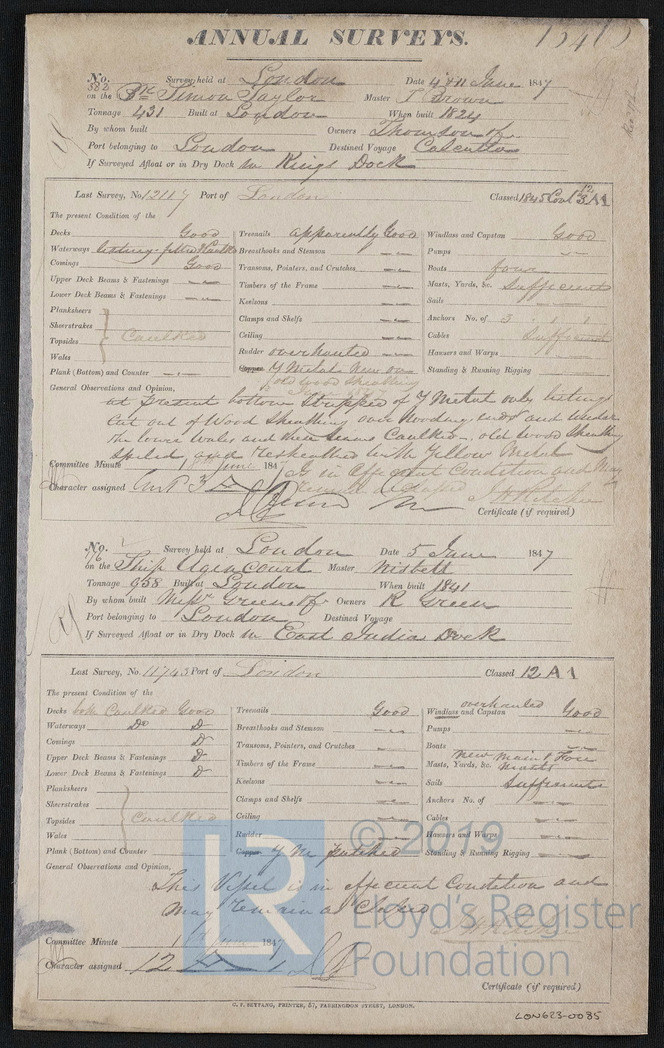 ANNUAL SURVEYS. 13413
No. 582 Survey held at London Date 4 & 11 June 1847
on the Bk Simon Taylor Master T Brown
Tonnage 431 Built at London When built 1824
By whom built Owners Thomson &c.
Port belonging to London Destined Voyage Calcutta
If Surveyed Afloat or in Dry Dock in Kings Dock
Last Survey, No. 12117 Port of London Classed 1845 Cont 3 A1
The present Condition of the
Decks Good
Waterways listings fitted & Caulkd
Comings Good
Upper Deck Beams & Fastenings
Lower Deck Beams & Fastenings
Planksheers
Sheerstrakes
Topsides Caulked
Wales
Plank (Bottom) and Counter
Treenails apparently Good
Breasthooks and Stemson
Transoms, Pointers, and Crutches
Timbers of the Frame
Keelsons
Clamps and Shelfs
Ceiling
Rudder overhauled
Copper Y Metal New on
old wood Sheathing
Windlass and Capstan Good
Pumps
Boats four
Masts, Yards, &c. Sufficient
Sails
Anchors No. of 3
Cables Sufficient
Hawsers and Warps
Standing & Running Rigging
General Observations and Opinion,
at present bottom Stripped of Y Metal only listing
cut out of Wood Sheathing over hooding ends and under
the lower Wales and these Seams Caulked. old wood Sheathing
and resheathed with Yellow Metal
is in Efficient Condition and May
remain as Classed
Committee Minute 18th June 1847
Character assigned Cont 3
Certificate (if required)
No. 76 Survey held at London Date 5 June 1847
on the Ship Agincourt Master Nisbett
Tonnage 958 Built at London When built 1841
By whom built Messrs Greens &c Owners R Green
Port belonging to London Destined Voyage
If Surveyed Afloat or in Dry Dock in East India Dock
Last Survey, No. 11743 Port of London Classed 12 A1
The present Condition of the
Decks both Caulked Good
Waterways Do D
Comings D
Upper Deck Beams & Fastenings D
Lower Deck Beams & Fastenings D
Planksheers
Sheerstrakes
Topsides Caulked
Wales
Plank (Bottom) and Counter
Treenails Good
Breasthooks and Stemson
Transoms, Pointers, and Crutches
Timbers of the Frame
Keelsons
Clamps and Shelfs
Ceiling
Rudder
Copper Y M patched
overhauled
Windlass and Capstan Good
Pumps
Boats
New Main & Fore
Masts, Yards, &c. Masts
Sails Sufficient
Anchors No. of
Cables
Hawsers and Warps
Standing & Running Rigging
General Observations and Opinion,
This Vessel is in efficient Condition and
May remain as Classed
Committee Minute 18th June 1847
Character assigned 12
Certificate (if required)
C. F. SEYFANG, PRINTER, 57, FARRINGDON STREET, LONDON.
LON623-0085
LR © 2019
Lloyd's Register
Foundation